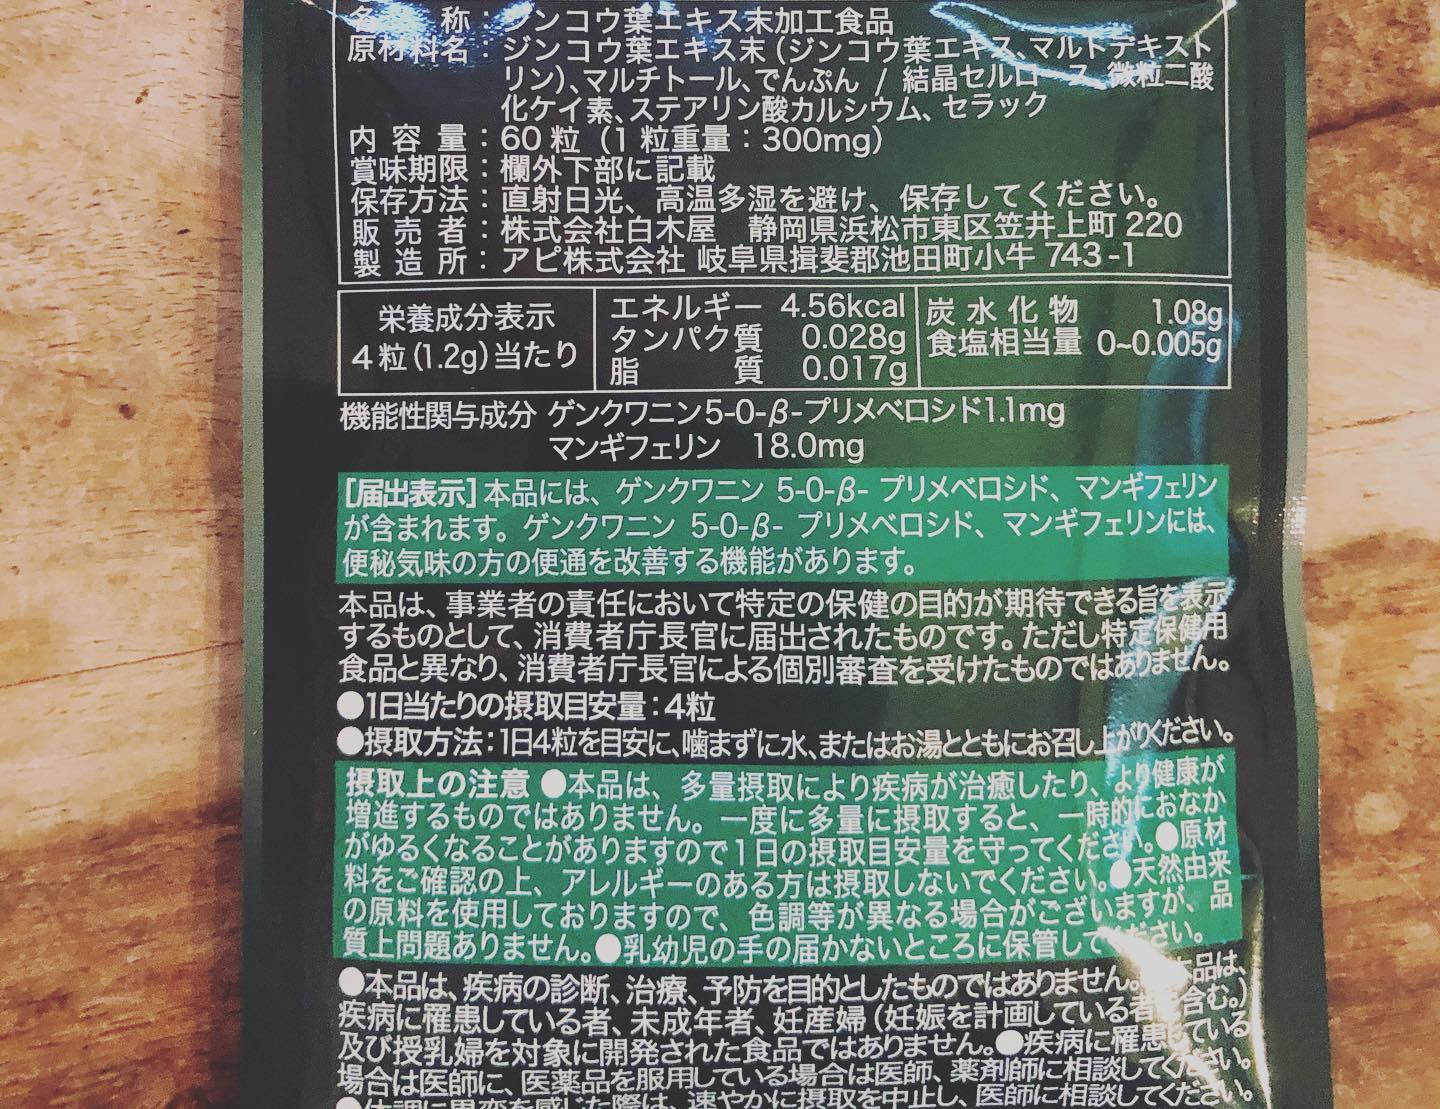 名 称：ジンコウ葉エキス末加工食品
原材料名：ジンコウ葉エキス末（ジンコウ葉エキス、マルトデキスト
リン）、マルチトール、でんぷん / 結晶セルロース、微粒二酸
化ケイ素、ステアリン酸カルシウム、セラック
内 容 量：60粒（1粒重量：300mg）
賞味期限：欄外下部に記載
保存方法：直射日光、高温多湿を避け、保存してください。
販 売 者：株式会社白木屋 静岡県浜松市東区笠井上町220
製 造 所：アピ株式会社 岐阜県揖斐郡池田町小牛743-1
栄養成分表示
4粒（1.2g）当たり
エネルギー 4.56kcal
タンパク質 0.028g
脂 質 0.017g
炭水化物 1.08g
食塩相当量 0~0.005g
機能性関与成分 ゲンクワニン5-O-β-プリメベロシド1.1mg
マンギフェリン 18.0mg
［届出表示］本品には、ゲンクワニン 5-O-β- プリメベロシド、マンギフェリン
が含まれます。ゲンクワニン 5-O-β- プリメベロシド、マンギフェリンには、
便秘気味の方の便通を改善する機能があります。
本品は、事業者の責任において特定の保健の目的が期待できる旨を表示
するものとして、消費者庁長官に届出されたものです。ただし特定保健用
食品と異なり、消費者庁長官による個別審査を受けたものではありません。
●1日当たりの摂取目安量：4粒
●摂取方法：1日4粒を目安に、噛まずに水、またはお湯とともにお召し上がりください。
摂取上の注意 ●本品は、多量摂取により疾病が治癒したり、より健康が
増進するものではありません。一度に多量に摂取すると、一時的におなか
がゆるくなることがありますので1日の摂取目安量を守ってください。●原材
料をご確認の上、アレルギーのある方は摂取しないでください。●天然由来
の原料を使用しておりますので、色調等が異なる場合がございますが、品
質上問題ありません。●乳幼児の手の届かないところに保管してください。
●本品は、疾病の診断、治療、予防を目的としたものではありません。●本品は、
疾病に罹患している者、未成年者、妊産婦（妊娠を計画している者を含む。）
及び授乳婦を対象に開発された食品ではありません。●疾病に罹患している
場合は医師に、医薬品を服用している場合は医師、薬剤師に相談してください。
●体調に異変を感じた際は、速やかに摂取を中止し、医師に相談してください。